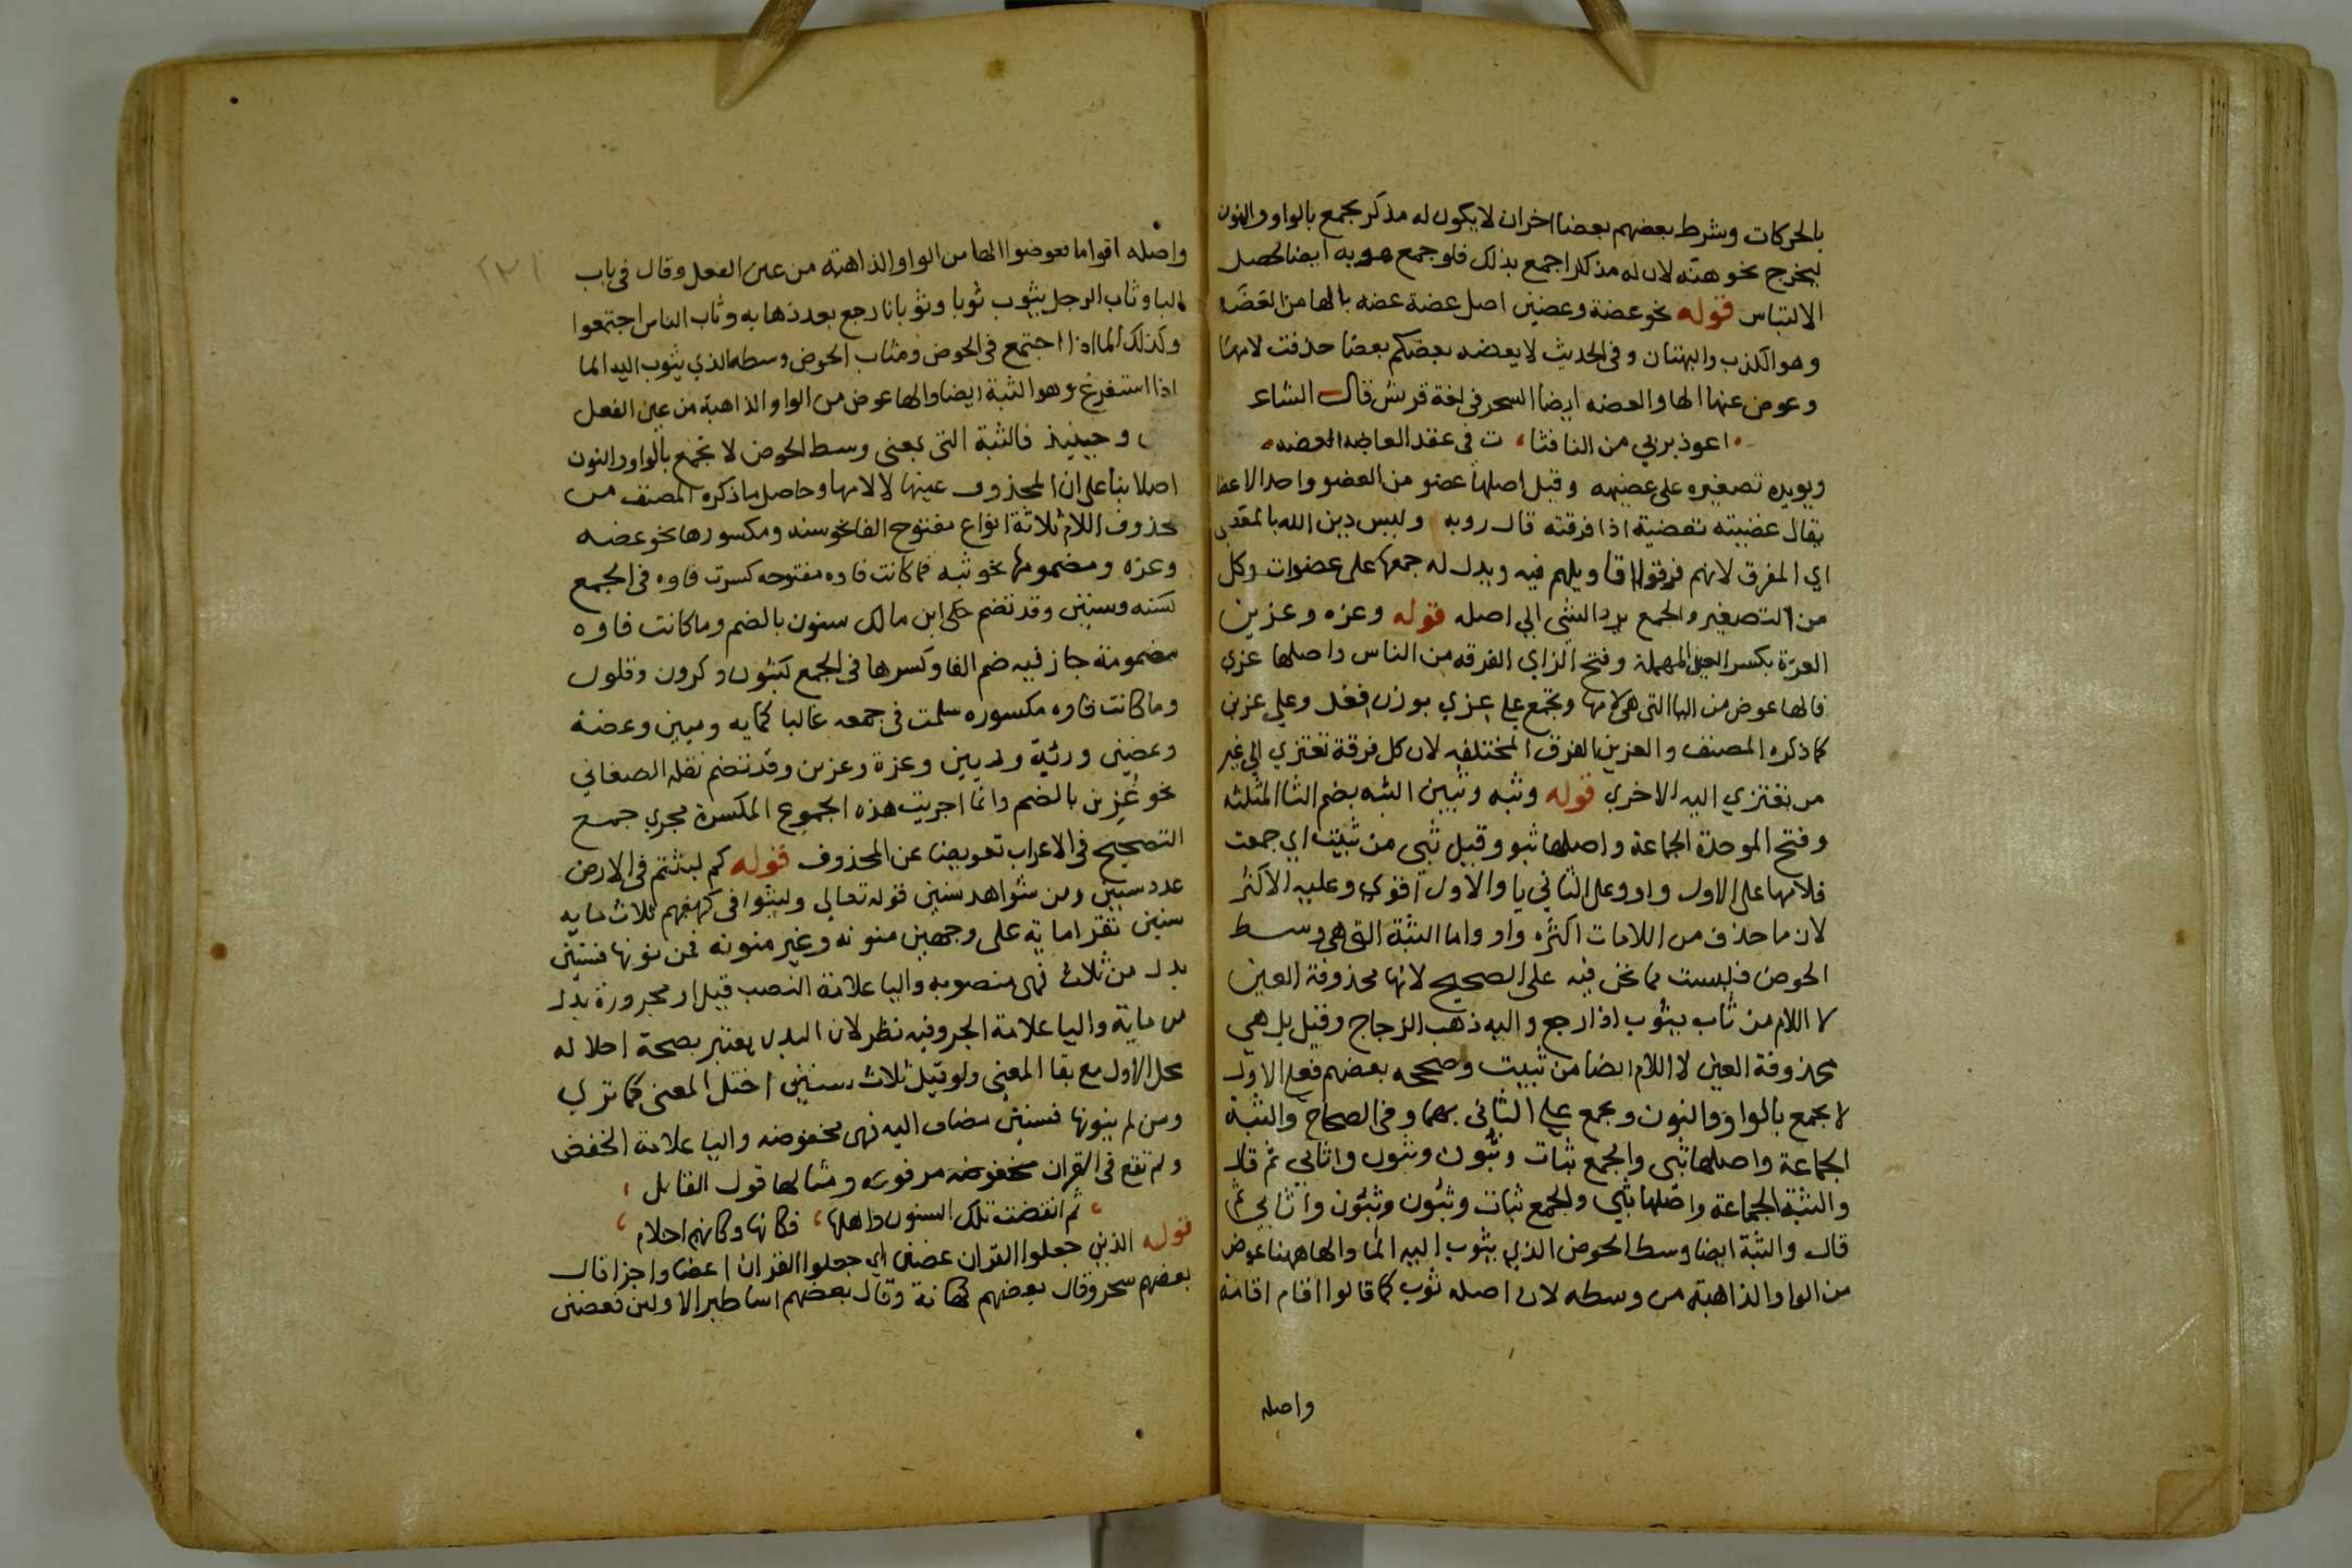 بالحركات وشرط بعضهم بعضا اخران لا يكون له مذكر يجمع بالواو والنون
ليخرج نحو هنه لان له مذكرا جمع بذلك فلو جمع هو به ايضا لحصل
الالتباس قوله نحو عضة وعضين اصل عضة عضه بالها من العَضَه
وهو الكذب والبهتان وفي الحديث لا يعضه بعضكم بعضا حذفت لامها
وعوض عنها الها والعضه ايضا السحر في لغة قريش قال الشاعر
اعوذ بربي من النافثا ت في عقد العاضه العضه
ويويده تصغيره على عضيهه وقيل اصلها عضو من العضو واحد الاعضا
يقال عضيته تعضية اذا فرقته قال روبه وليس دين الله بالمعضى
اي المفرق لانهم فرقوا اقاويلهم فيه ويدل له جمعها على عضوات وكل
من التصغير والجمع يرد الشي الى اصله قوله وعزه وعزين
العزة بكسر العين المهملة وفتح الزاي الفرقه من الناس واصلها عزي
فالها عوض من اليا التي هي لامها وتجمع على عزي بوزن فعل وعلى عزين
كما ذكره المصنف والعزين الفرق المختلفه لان كل فرقة تعتزي الى غير
من تعتزي اليه الاخرى قوله وثبه وثبين الثبه بضم الثا المثلثه
وفتح الموحدة الجماعة واصلها ثبو وقيل ثبى من ثبيت اي جمعت
فلامها على الاول واو وعلى الثاني يا والاول اقوى وعليه الاكثر
لان ما حذف من اللامات اكثره واو واما الثبة التي هي وسط
الحوض فليست مما نحن فيه على الصحيح لانها محذوفة العين
لا اللام من ثاب يثوب اذا رجع واليه ذهب الزجاج وقيل بل هي
محذوفة العين لا اللام ايضا من ثبيت وصححه بعضهم فعلى الاول
لا يجمع بالواو والنون ويجمع على الثاني بهما وفي الصحاح والثبة
الجماعة واصلها ثبى والجمع ثبات وثبون وثبون واثابي ثم قال
والثبة الجماعة واصلها ثبي والجمع ثبات وثبون وثبون واثابي ثم
قال والثبة ايضا وسط الحوض الذي يثوب اليه الما والها ههنا عوض
من الواو الذاهبة من وسطه لان اصله ثوب كما قالوا اقام اقامة
واصله
واصله اقواما فعوضوا الها من الواو الذاهبة من عين الفعل وقال في باب
البا وثاب الرجل يثوب ثوبا وثوبانا رجع بعد ذهابه وثاب الناس اجتمعوا
وكذلك الما اذا اجتمع في الحوض ومثاب الحوض وسطه الذي يثوب اليه الما
اذا استفرغ وهو الثبة ايضا والها عوض من الواو الذاهبة من عين الفعل
وحينيذ فالثبة التي بمعنى وسط الحوض لا تجمع بالواو والنون
اصلا بنا على ان المحذوف عينها لا لامها وحاصل ما ذكره المصنف من
محذوف اللام ثلاثة انواع مفتوح الفا نحو سنه ومكسورها نحو عضه
وعزه ومضمومها نحو ثبه فما كانت فاوه مفتوحه كسرت فاوه في الجمع
كسنه وسنين وقد تضم حكى ابن مالك سنون بالضم وما كانت فاوه
مضمومة جاز فيه ضم الفا وكسرها في الجمع كثبون وكرون وقلون
وما كانت فاوه مكسوره سلمت في جمعه غالبا كمايه وميين وعضة
وعضين ورئية ورئيين وعزة وعزين وقد تضم نقله الصغاني
نحو عُزين بالضم وانما اجريت هذه الجموع المكسرة مجرى جمع
التصحيح في الاعراب تعويضا عن المحذوف قوله كم لبثتم في الارض
عدد سنين ومن شواهد سنين قوله تعالى ولبثوا في كهفهم ثلاث مايه
سنين تقرا ماية على وجهين منونه وغير منونه فمن نونها فسنين
بدل من ثلاث فهي منصوبه واليا علامة النصب قيل او مجرورة بدل
من ماية واليا علامة الجر وفيه نظر لان البدل يعتبر بصحة احلاله
محل الاول مع بقا المعنى ولو قيل ثلاث سنين اختل المعنى كما ترى
ومن لم ينونها فسنين مضاف اليه فهي مخفوضه واليا علامة الخفض
ولم تقع في القران مخفوضه مرفوعه ومثالها قول القايل
ثم انقضت تلك السنون واهلها فكانها وكانهم احلام
قوله الذين جعلوا القران عضين اي جعلوا القران اعضا واجزا قال
بعضهم سحر وقال بعضهم كهانة وقال بعضهم اساطير الاولين فعضين